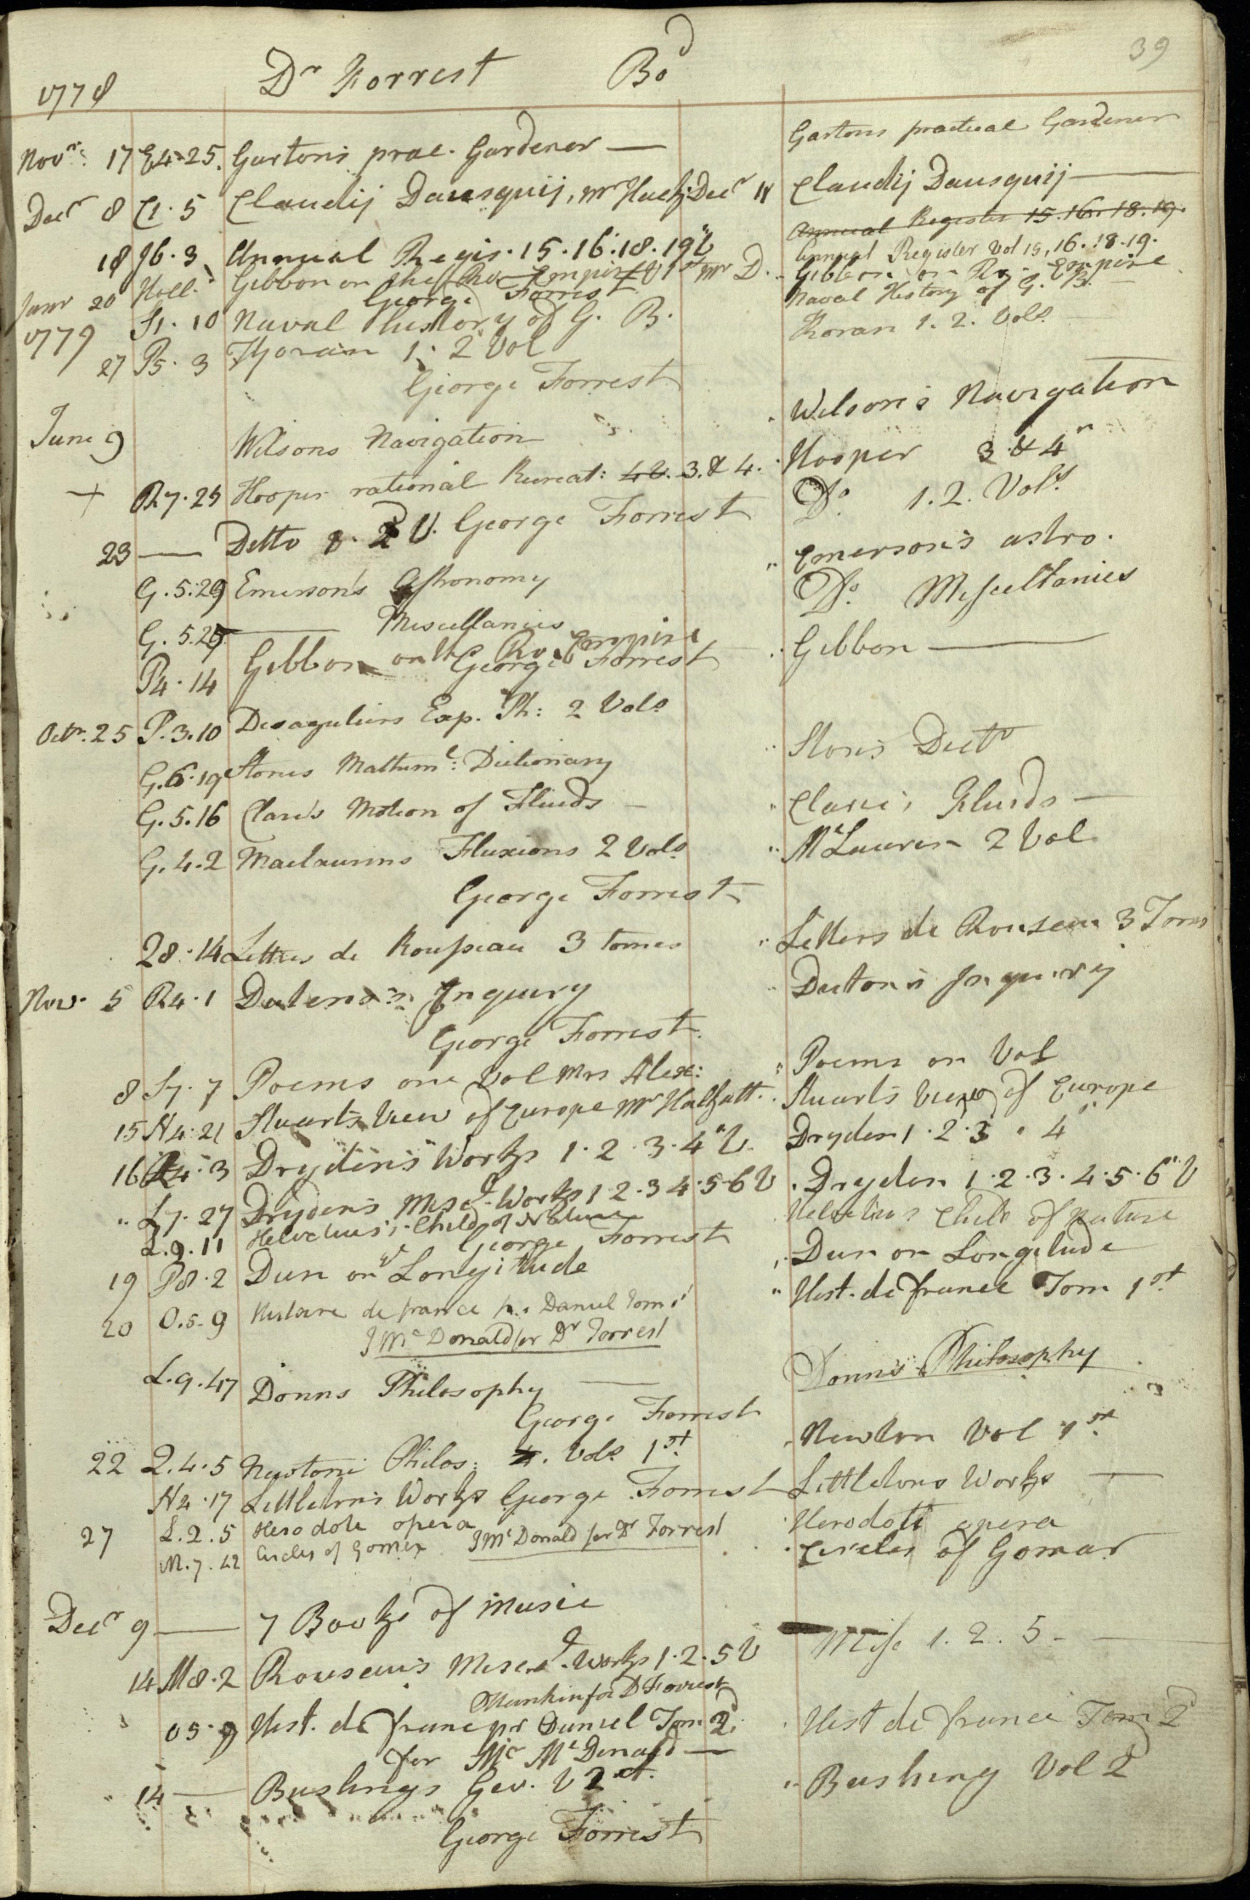 39
1778 Dr Forrest Bod
Novr. 17 E4.25. Garton's prac. Gardener — Gartons practical Gardener
Decr 8 C1.5 Claudij Dausquij, Mr Decr 11 Claudij Dausquij —
Annual Register 15.16.18.19.
18 J6.3 Annual Regis. 15.16.18.19 V Annual Register Vol 15, 16.18.19.
Janr 20 Gibbon on the Ro. Empire V 1st Mr D. Gibbon on Ro. Empire
George Forrest
1779 S1.10 Naval History of G. B. Naval History of G. B. —
27 P5.3 Koran 1. 2 Vol Koran 1. 2. Vols
George Forrest
June 9 Wilsons Navigation Wilson's Navigation
+ R7.25 Hoopers rational Recreat: 1.2. 3. & 4. Hooper 3 & 4
23 — Ditto 1. 2 V. George Forrest Do. 1. 2. Vols
G. 5.29 Emerson's Astronomy Emerson's astro.
G. 5.25 — Miscellanies Do. Miscellanies
P4.14 Gibbon on the Ro. Empire Gibbon —
George Forrest
Octr. 25 P.3.10 Desaguliers Exp. Ph: 2 Vols
G.6.19 Stones Matheml: Dictionary Stones Dicty
G.5.16 Clare's Motion of Fluids — Clare's Fluids —
G.4.2 Maclaurins Fluxions 2 Vols McLauren 2 Vol
George Forrest
28.14 Lettres de Rousseau 3 tomes Letters de Rouseau 3 Toms
Nov. 5 R4.1 Dutens's Inquiry Dutton's Inquiry
George Forrest
8 S7.7 Poems one Vol Mrs Alexr: Poems on Vol
15 N4.21 Stuarts View of Europe Mr Stuarts View of Europe
16 4.3 Dryden's Works 1.2.3.4 V. Dryden 1.2.3.4
" L7.27 Dryden's Misc. Works 1.2.3 4.5.6 V Dryden 1.2.3.4.5.6 V
L.9.11 Helvetius's Child of Nature Helvetius Child of Nature
George Forrest
19 P8.2 Dun on Longitude Dun on Longitude
20 O.5.9 Histoire de france pr. Daniel Tom 1 Hist. de france Tom 1st.
J McDonald for Dr Forrest
L.9.47 Donns Philosophy — Donn's Philosophy
George Forrest
22 2.4.5 Newtoni Philos: Vols 1st Newton Vol 1st.
N4.17 Littletons Works George Forrest Littletons Works —
27 L.2.5 Herodoti opera Herodoti opera
M.7.22 Circles of Gomer J McDonald for Dr Forrest Circles of Gomar
Decr 9 — 7 Books of Music
14 M8.2 Rouseau's Misc. Works 1.2.5 V Misc 1. 2. 5. —
for D Forrest
O5.9 Hist. de france pr Daniel Tom 2d Hist de france Tom 2d
for Mr McDonald —
14 — Bushings Geo. V 2d. Bushing Vol 2d
George Forrest